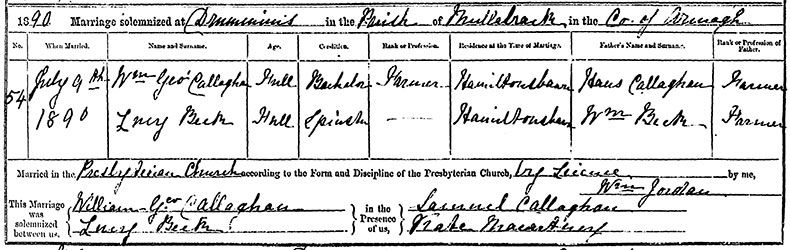 1890. Marriage solemnized at Drumminis in the Parish of Mullabrack in the Co. of Armagh
No. When Married. Name and Surname. Age. Condition. Rank or Profession. Residence at the Time of Marriage. Father's Name and Surname. Rank or Profession of Father.
54 July 9th Wm Geo Callaghan Full Bachelor Farmer Hamiltonsbawn Hans Callaghan Farmer
1890 Lucy Beck Full Spinster — Hamiltonsbawn Wm Beck Farmer
Married in the Presbyterian Church according to the Form and Discipline of the Presbyterian Church, by License by me,
Wm Jordan
This Marriage was solemnized between us, William Geo Callaghan in the Presence of us, Samuel Callaghan
Lucy Beck Kate Macartney